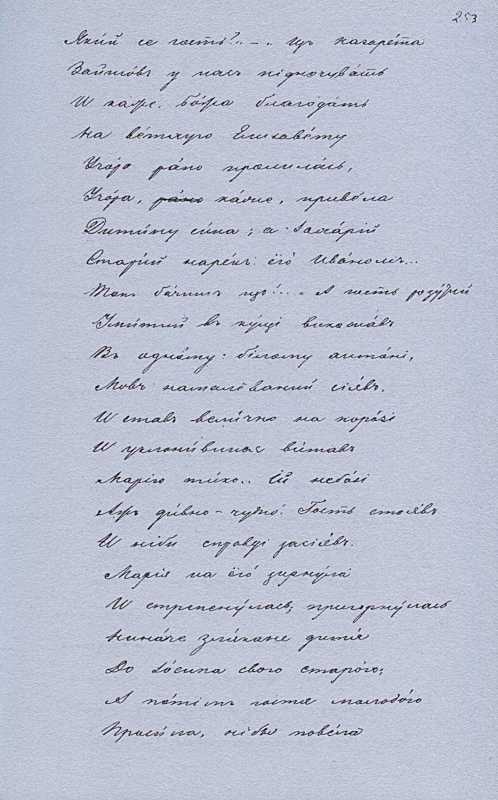 253
Який се гость?.. — Изъ Назаре́та
Зайшовъ у насъ підночува́ть
И каже. Бо́жа благода́ть
На ве́тхую Елисаве́ту
Учо́ра ра́но пролила́сь,
Учо́ра, ра́но каже, привела́
Дити́ну си́на; а Заха́рій
Стари́й наре́къ ёго́ Ива́номъ...
Тимъ ба́чишъ що!... А гость розу́тий
Уми́тий въ ку́щі вихожа́въ
Въ одно́му білому хито́ні,
Мовъ намальо́ваний сія́въ.
И ставъ вели́чно на поро́зі
И уклони́вшись віта́въ
Марі́ю ти́хо.. Ій небо́зі
Ажъ ди́вно-чу́дно! Гость стоя́въ
И ніби спра́вді засія́въ.
Марія на ёго́ зирну́ла
И стрепену́лась, пригорну́лась
Нина́че зля́кане дитя́
До Іо́сипа свого́ старо́го;
А по́тімъ гостя молодо́го
Проси́ла, ніби повела́